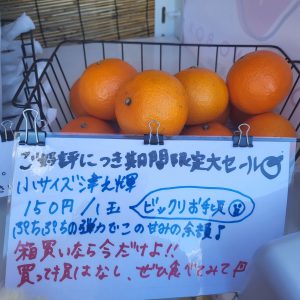 ご好評につき期間限定大セール
小サイズ津之輝
150円/1玉
ビックリお手頃
ぷちぷちの弾力でこの甘みの余韻♪
箱買いなら今だけよ!!
買って損はなし、ぜひ食べてみて